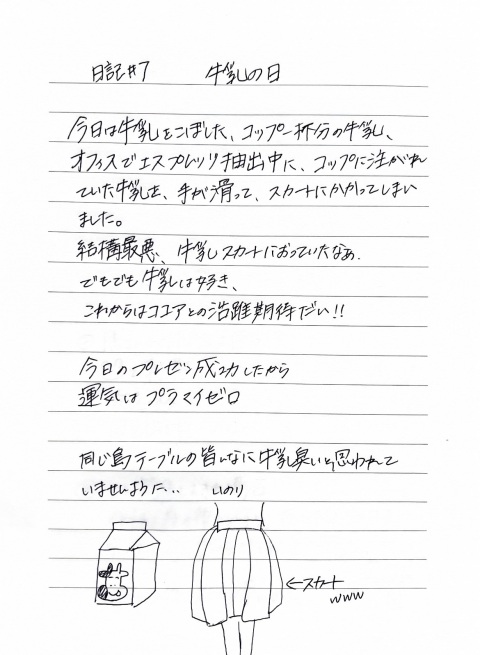 日記#7 牛乳の日
今日は牛乳をこぼした、コップ一杯分の牛乳、
オフィスでエスプレッソ抽出中に、コップに注がれ
ていた牛乳を、手が滑って、スカートにかかってしまい
ました。
結構最悪、牛乳スカートにおっていたなぁ.
でもでも牛乳は好き、
これからはココアとの活躍期待だい!!
今日のプレゼン成功したから
運気はプラマイゼロ
同じ島テーブルの皆んなに牛乳臭いと思われて
いませんように... いのり
←スカート
www